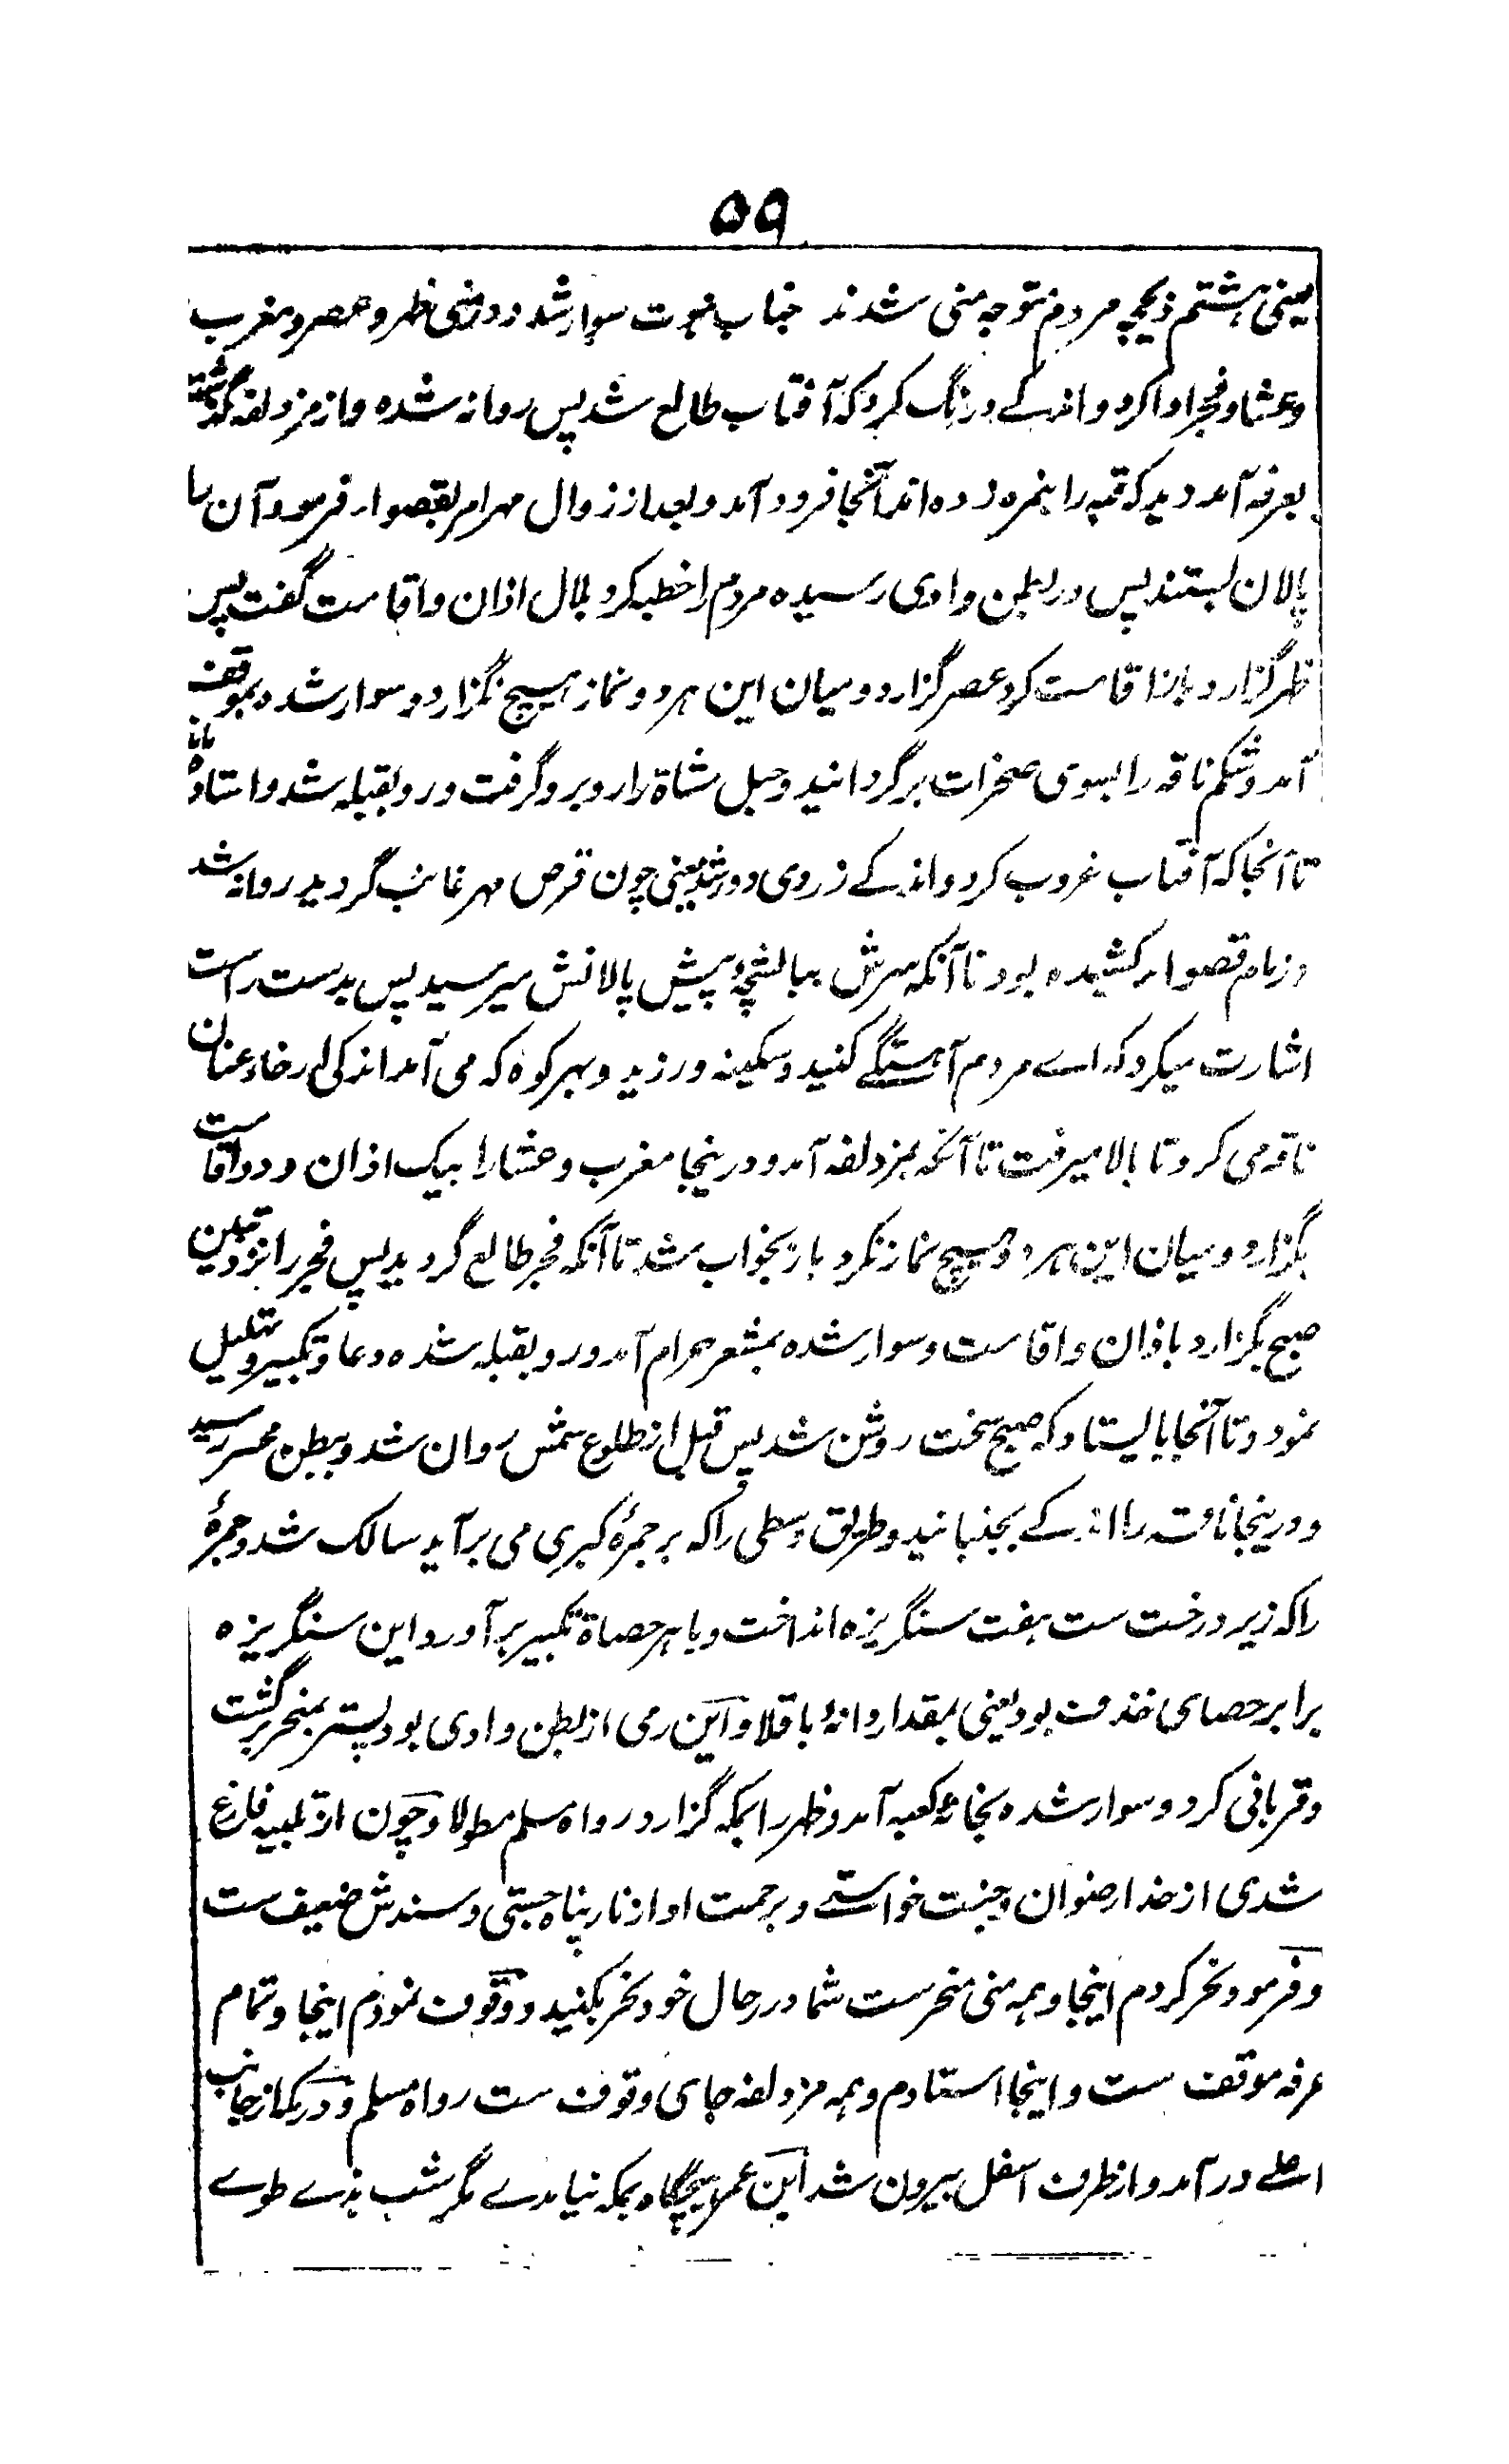 ۵۹
یعنی هشتم ذیحجه مردم متوجه منی شدند جناب نبوت سوار شد و در منی ظهر و عصر و مغرب
و عشا و فجر ادا کرد و اندکے درنگ کرد که آفتاب طالع شد پس روانه شده و از مزدلفه گذشته
بعرفه آمد دید که قبه را بنمره زده اند آنجا فرود آمد و بعد از زوال مهر امر بقصواء فرمود آن را
پالان بستند پس در بطن وادی رسیده مردم را خطبه کرد بلال اذان و اقامت گفت پس
ظهر گزارد باز اقامت کرد عصر گزارد و میان این هر دو نماز هیچ نگزارد و سوار شده بموقف
آمد و شکم ناقه را بسوی صخرات برگردانید و حبل مشاة را روبرو گرفت و رو بقبله شد و استاده ماند
تا آنجا که آفتاب غروب کرد و اندکے زردی دور شد یعنی چون قرص مهر غائب گردید روانه شد
و زمام قصواء کشیده بود تا آنکه سرش ببالشچهٔ پیش پالانش میرسید پس بدست راست
اشارت میکرد که اے مردم آهستگے کنید و سکینه ورزید و بهر کوه که می آمد اندکی ارخاء عنان
ناقه می کرد تا بالا میرفت تا آنکه بمزدلفه آمد و درینجا مغرب و عشا را بیک اذان و دو اقامت
بگزارد و میان این هر دو هیچ نماز نکرد باز بخواب شد تا آنکه فجر طالع گردید پس فجر را نزد تبین
صبح بگزارد باذان و اقامت و سوار شده بمشعر حرام آمد و رو بقبله شده دعا و تکبیر و تهلیل
نمود و تا آنجا بایستاد که صبح سخت روشن شد پس قبل از طلوع شمس روان شد و ببطن محسر رسید
و درینجا ناقه را اندکے بجنبانید و طریق وسطی را که بر جمرهٔ کبری می برآید سالک شد و جمرهٔ
را که زیر درخت ست هفت سنگریزه انداخت و با هر حصاة تکبیر برآورد و این سنگریزه
برابر حصای خذف بود یعنی بمقدار دانهٔ باقلا و این رمی از بطن وادی بود پستر بمنحر برگشت
و قربانی کرد و سوار شده بخانهٔ کعبه آمد و ظهر را بمکه گزارد رواه مسلم مطولا و چون از تلبیه فارغ
شدی از خدا رضوان و جنت خواستے و برحمت او از نار پناه جستی و سندش ضعیف ست
و فرمود نحر کردم اینجا و همه منی منحرست شما در رحال خود نحر بکنید و وقوف نمودم اینجا و تمام
عرفه موقف ست و اینجا استادم و همه مزدلفه جای وقوف ست رواه مسلم و در مکه از جانب
اعلے درآمد و از طرف اسفل بیرون شد ابن عمر هیچگاه بمکه نیامدے مگر شب بذے طوے